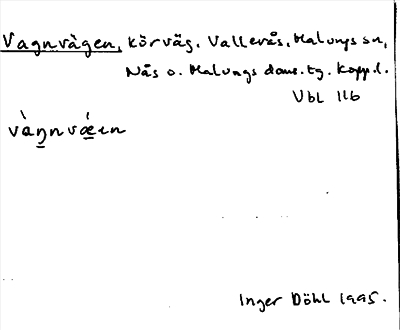 Vagnvägen, körväg. Vallerås, Malungs sn,
Nås o. Malungs doms.tg. Kopp.l.
Vbl 11b
vàŋnvǽɩn
Inger Döhl 1995.